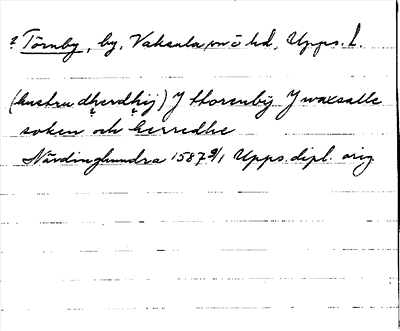 ? Törnby, by, Vaksala sn o hd, Upps. l.
(hustru dherdhij) J thorenby J waxalle
soken och herredhe
Närdinghundra 1587 9/1 Upps. dipl. orig